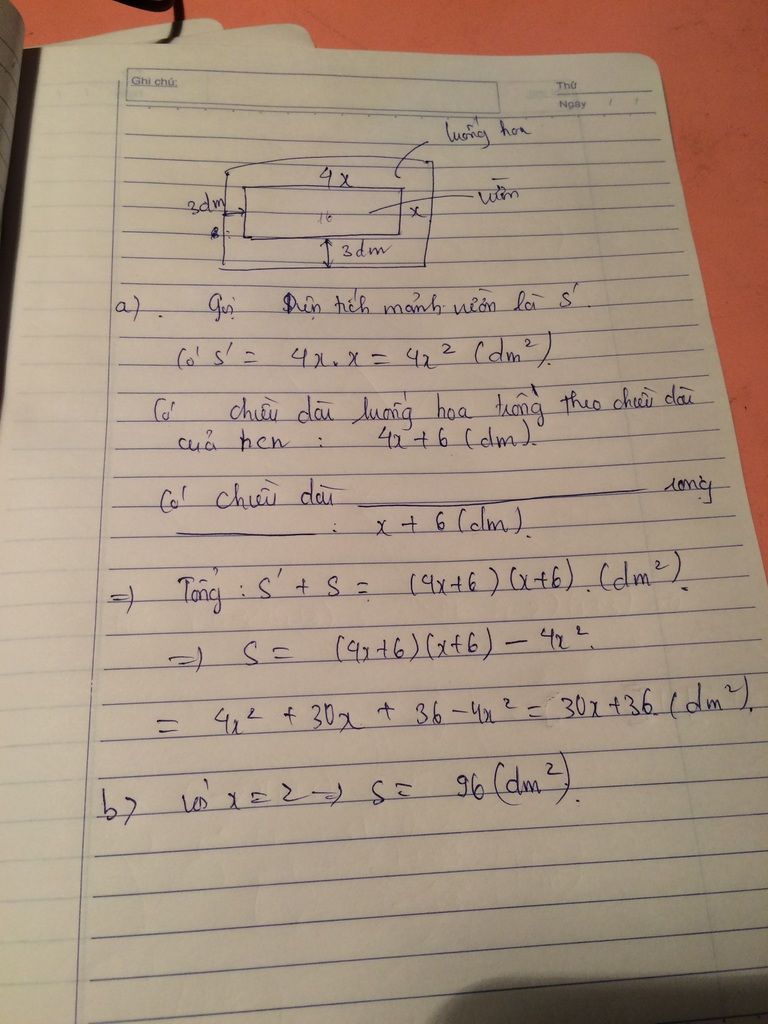 Ghi chú:
Thứ
Ngày / /
luống hoa
4x
3dm
x
vườn
16
3dm
a). Gọi Diện tích mảnh vườn là S'.
Có S' = 4x.x = 4x² (dm²).
Có chiều dài luống hoa trồng theo chiều dài
của hcn : 4x + 6 (dm).
Có chiều dài ——— rộng
——— : x + 6 (dm).
=) Tổng : S' + S = (4x+6)(x+6). (dm²).
=) S = (4x+6)(x+6) - 4x².
= 4x² + 30x + 36 - 4x² = 30x + 36. (dm²).
b) với x = 2 =) S = 96 (dm²).